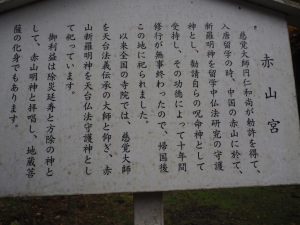 赤山宮
慈覚大師円仁和尚が勅許を得て、
入唐留学の時、中国の赤山に於て、
新羅明神を留学中仏法研究の守護
神とし、勧請自らの呪命神として
受持し、その功徳によって十年間、
修行が無事終わったので、帰国後
この地に祀られました。
以来全国の寺院では、慈覚大師
を天台法義伝承の大師と仰ぎ、赤
山新羅明神を天台仏法守護神とし
て祀っています。
御利益は除災延寿と方除の神と
して、赤山明神と拝唱し、地蔵菩
薩の化身でもあります。